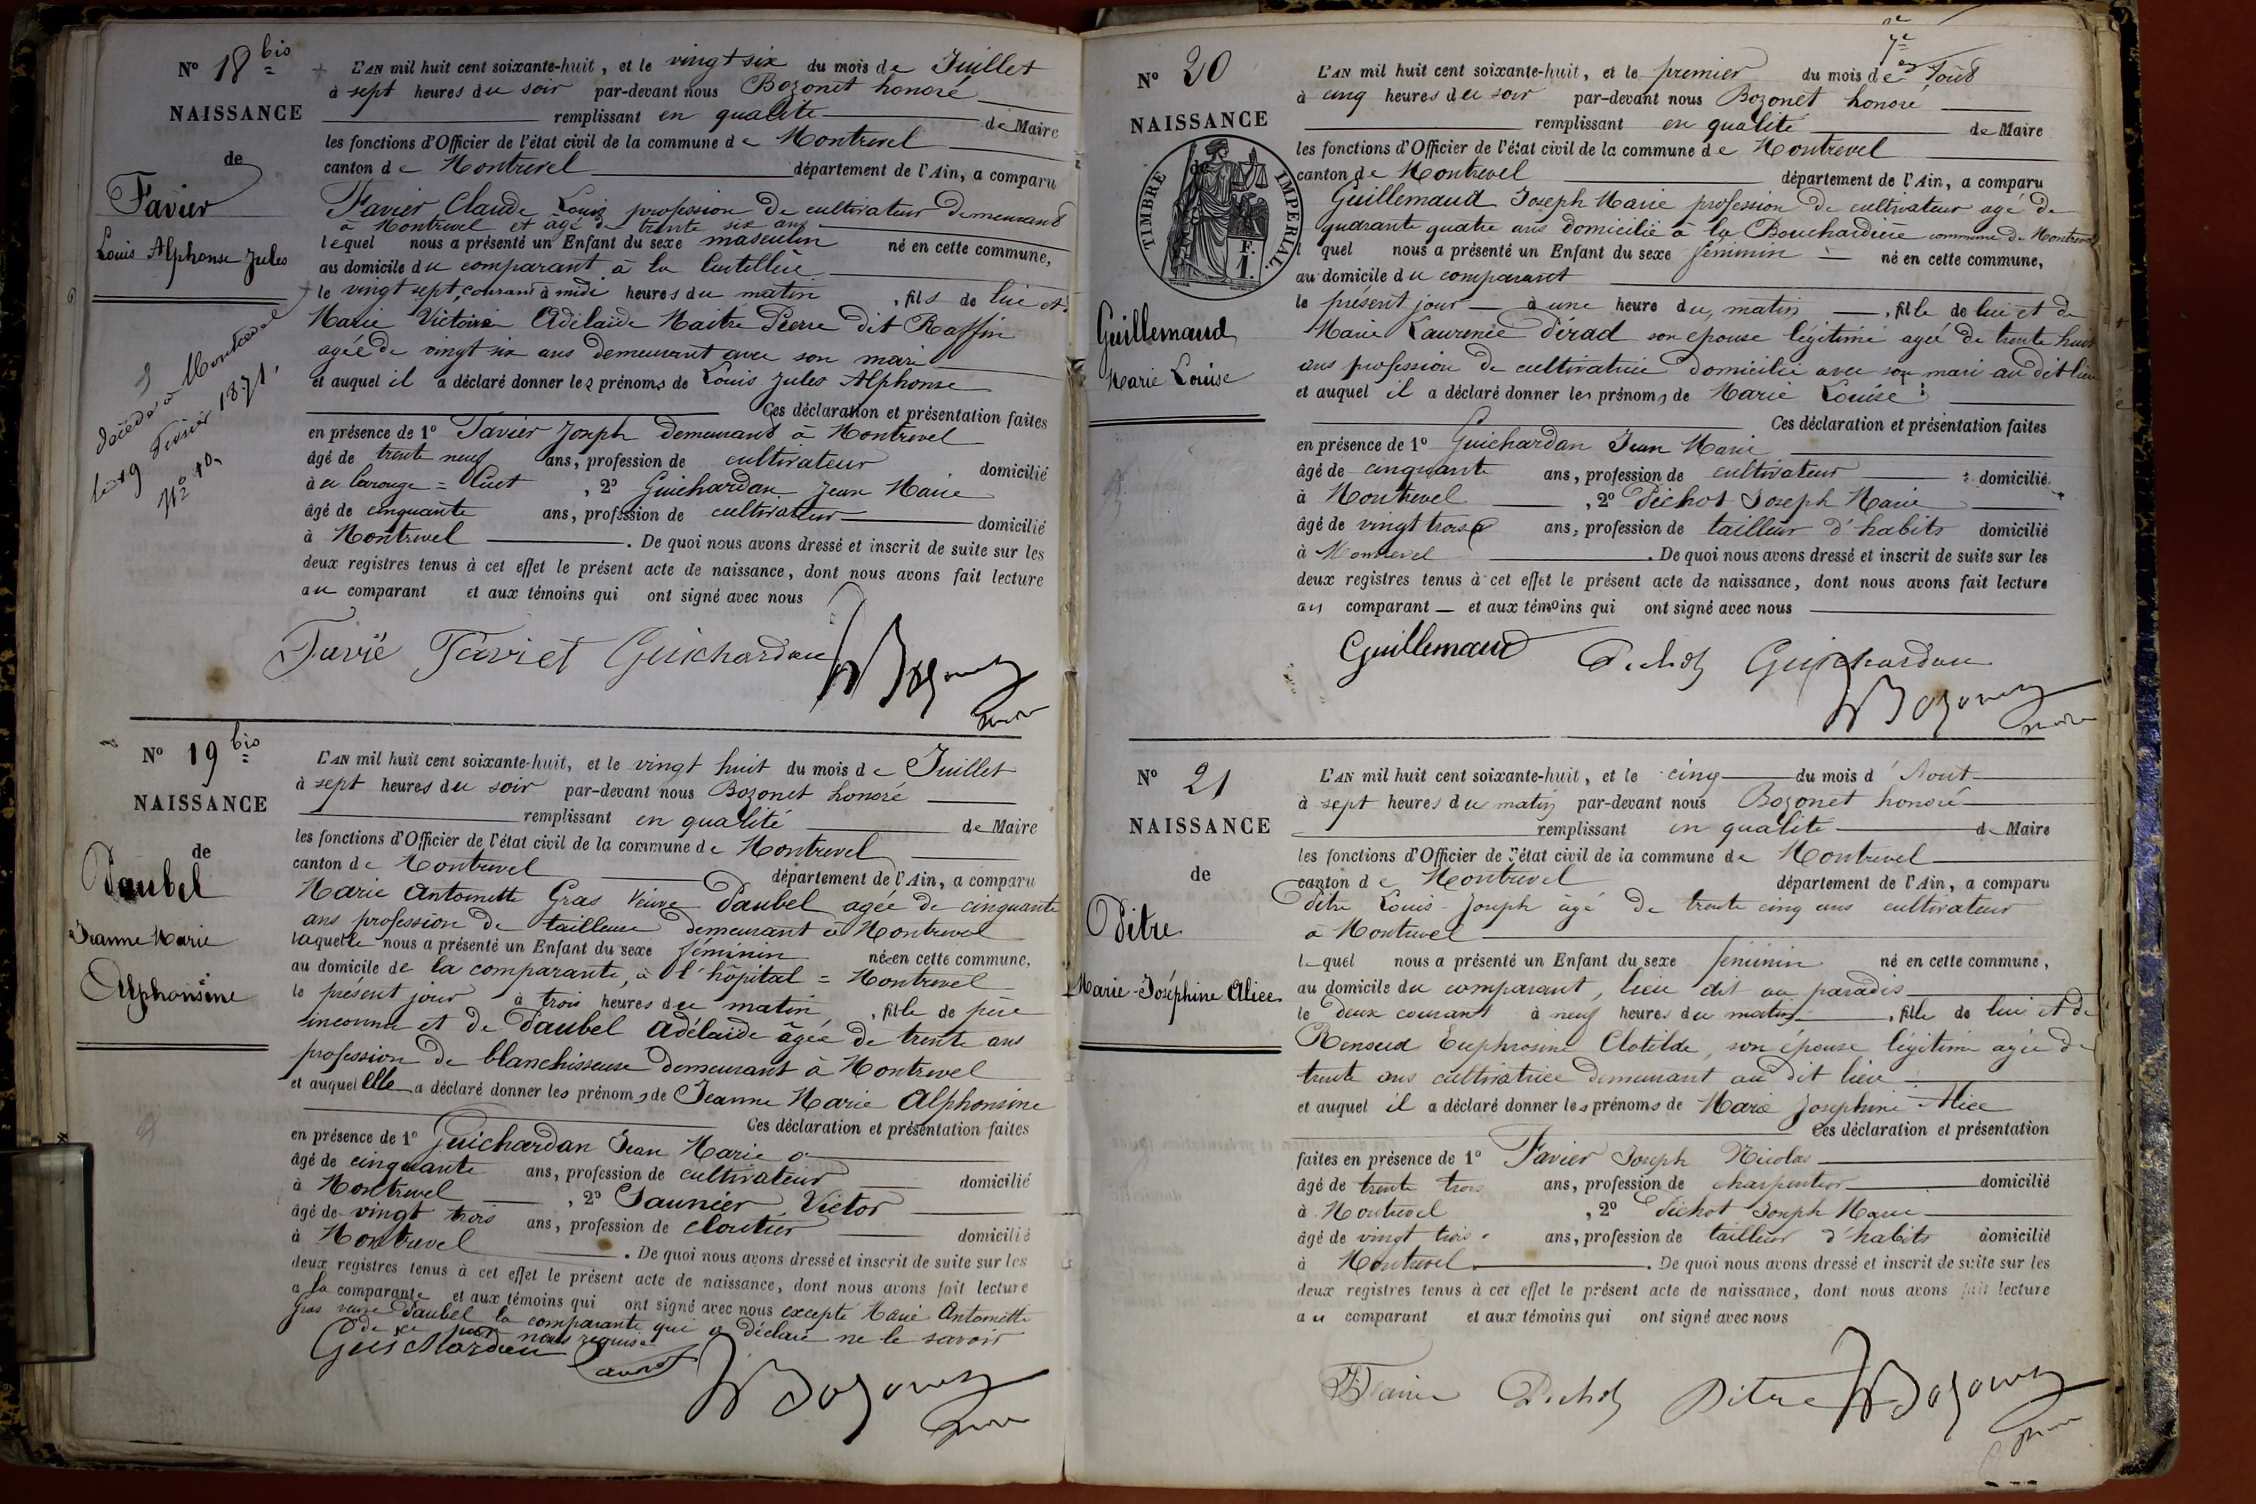 N° 18 bis
NAISSANCE
de
Favier
Louis Alphonse Jules
décédé à Montrevel
le 19 Février 1871,
N° 10,
L'AN mil huit cent soixante-huit, et le vingt six du mois de Juillet
à sept heures du soir par-devant nous Bozonet honoré
remplissant en qualité de Maire
les fonctions d'Officier de l'état civil de la commune de Montrevel
canton de Montrevel département de l'Ain, a comparu
Favier Claude Louis profession de cultivateur demeurant
à Montrevel et âgé de trente six ans
lequel nous a présenté un Enfant du sexe masculin né en cette commune,
au domicile du comparant à la
le vingt sept courant à midi heures du matin, fils de lui et
Marie Victoire Adélaïde Maitre Pierre dit Raffin
agée de vingt six ans demeurant avec son mari
et auquel il a déclaré donner les prénoms de Louis Jules Alphonse
Ces déclaration et présentation faites
en présence de 1° Favier Joseph demeurant à Montrevel
âgé de trente neuf ans, profession de cultivateur domicilié
à , 2° Guichardan Jean Marie
âgé de cinquante ans, profession de cultivateur domicilié
à Montrevel . De quoi nous avons dressé et inscrit de suite sur les
deux registres tenus à cet effet le présent acte de naissance, dont nous avons fait lecture
au comparant et aux témoins qui ont signé avec nous
Favié Faviet Guichardan Bozonet
maire
N° 19 bis
NAISSANCE
de
Paubel
Jeanne Marie
Alphonsine
L'AN mil huit cent soixante-huit, et le vingt huit du mois de Juillet
à sept heures du soir par-devant nous Bozonet honoré
remplissant en qualité de Maire
les fonctions d'Officier de l'état civil de la commune de Montrevel
canton de Montrevel département de l'Ain, a comparu
Marie Antoinette Gras Veuve Paubel agée de cinquante
ans profession de tailleuse demeurant à Montrevel
laquelle nous a présenté un Enfant du sexe féminin né en cette commune,
au domicile de la comparante, à l'hôpital = Montrevel
le présent jour à trois heures du matin, fille de père
inconnu et de Paubel Adélaïde âgée de trente ans
profession de blanchisseuse demeurant à Montrevel
et auquel elle a déclaré donner les prénoms de Jeanne Marie Alphonsine
Ces déclaration et présentation faites
en présence de 1° Guichardan Jean Marie
âgé de cinquante ans, profession de cultivateur domicilié
à Montrevel , 2° Saunier Victor
âgé de vingt trois ans, profession de cloutier domicilié
à Montrevel . De quoi nous avons dressé et inscrit de suite sur les
deux registres tenus à cet effet le présent acte de naissance, dont nous avons fait lecture
a la comparante et aux témoins qui ont signé avec nous excepté Marie Antoinette
Gras veuve Paubel la comparante qui a déclaré ne le savoir
de ce par nous requise
Guichardan Bozonet
maire
N° 20
NAISSANCE
de
TIMBRE IMPERIAL
1 F.
Guillemaud
Marie Louise
L'AN mil huit cent soixante-huit, et le premier du mois de Aoüt
à cinq heures du soir par-devant nous Bozonet honoré
remplissant en qualité de Maire
les fonctions d'Officier de l'état civil de la commune de Montrevel
canton de Montrevel département de l'Ain, a comparu
Guillemaud Joseph Marie profession de cultivateur agé de
quarante quatre ans domicilié à la Bouchardière commune de Montrevel
l quel nous a présenté un Enfant du sexe féminin né en cette commune,
au domicile du comparant
le présent jour à une heure du matin, fille de lui et de
Marie Laurence Pérad son epouse légitime agée de trente huit
ans profession de cultivatrice domicilié avec son mari au dit lieu
et auquel il a déclaré donner les prénoms de Marie Louise
Ces déclaration et présentation faites
en présence de 1° Guichardan Jean Marie
âgé de cinquante ans, profession de cultivateur domicilié
à Montrevel , 2° Pichot Joseph Marie
âgé de vingt trois ans, profession de tailleur d'habits domicilié
à Montrevel . De quoi nous avons dressé et inscrit de suite sur les
deux registres tenus à cet effet le présent acte de naissance, dont nous avons fait lecture
au comparant et aux témoins qui ont signé avec nous
Guillemaud Pichot Guichardan
Bozonet
maire
N° 21
NAISSANCE
de
Pitre
Marie-Joséphine Alice
L'AN mil huit cent soixante-huit, et le cinq du mois d'Aout
à sept heures du matin par-devant nous Bozonet honoré
remplissant en qualité de Maire
les fonctions d'Officier de l'état civil de la commune de Montrevel
canton de Montrevel département de l'Ain, a comparu
Pitre Louis Joseph agé de trente cinq ans cultivateur
à Montrevel
l quel nous a présenté un Enfant du sexe féminin né en cette commune,
au domicile du comparant, lieu dit au paradis
le deux courant à neuf heures du matin, fille de lui et de
Renoud Euphrosine Clotilde, son épouse légitime agée de
trente ans cultivatrice demeurant au dit lieu
et auquel il a déclaré donner les prénoms de Marie Josephine Alice
Ces déclaration et présentation
faites en présence de 1° Favier Joseph Nicolas
âgé de trente trois ans, profession de charpentier domicilié
à Montrevel , 2° Pichot Joseph Marie
âgé de vingt trois ans, profession de tailleur d'habits domicilié
à Montrevel . De quoi nous avons dressé et inscrit de suite sur les
deux registres tenus à cet effet le présent acte de naissance, dont nous avons fait lecture
au comparant et aux témoins qui ont signé avec nous
Favier Pichot Pitre Bozonet
maire